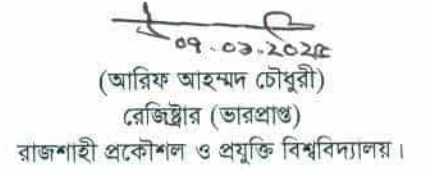 ০৭.০৩.২০২৫
(আরিফ আহম্মদ চৌধুরী)
রেজিষ্ট্রার (ভারপ্রাপ্ত)
রাজশাহী প্রকৌশল ও প্রযুক্তি বিশ্ববিদ্যালয়।